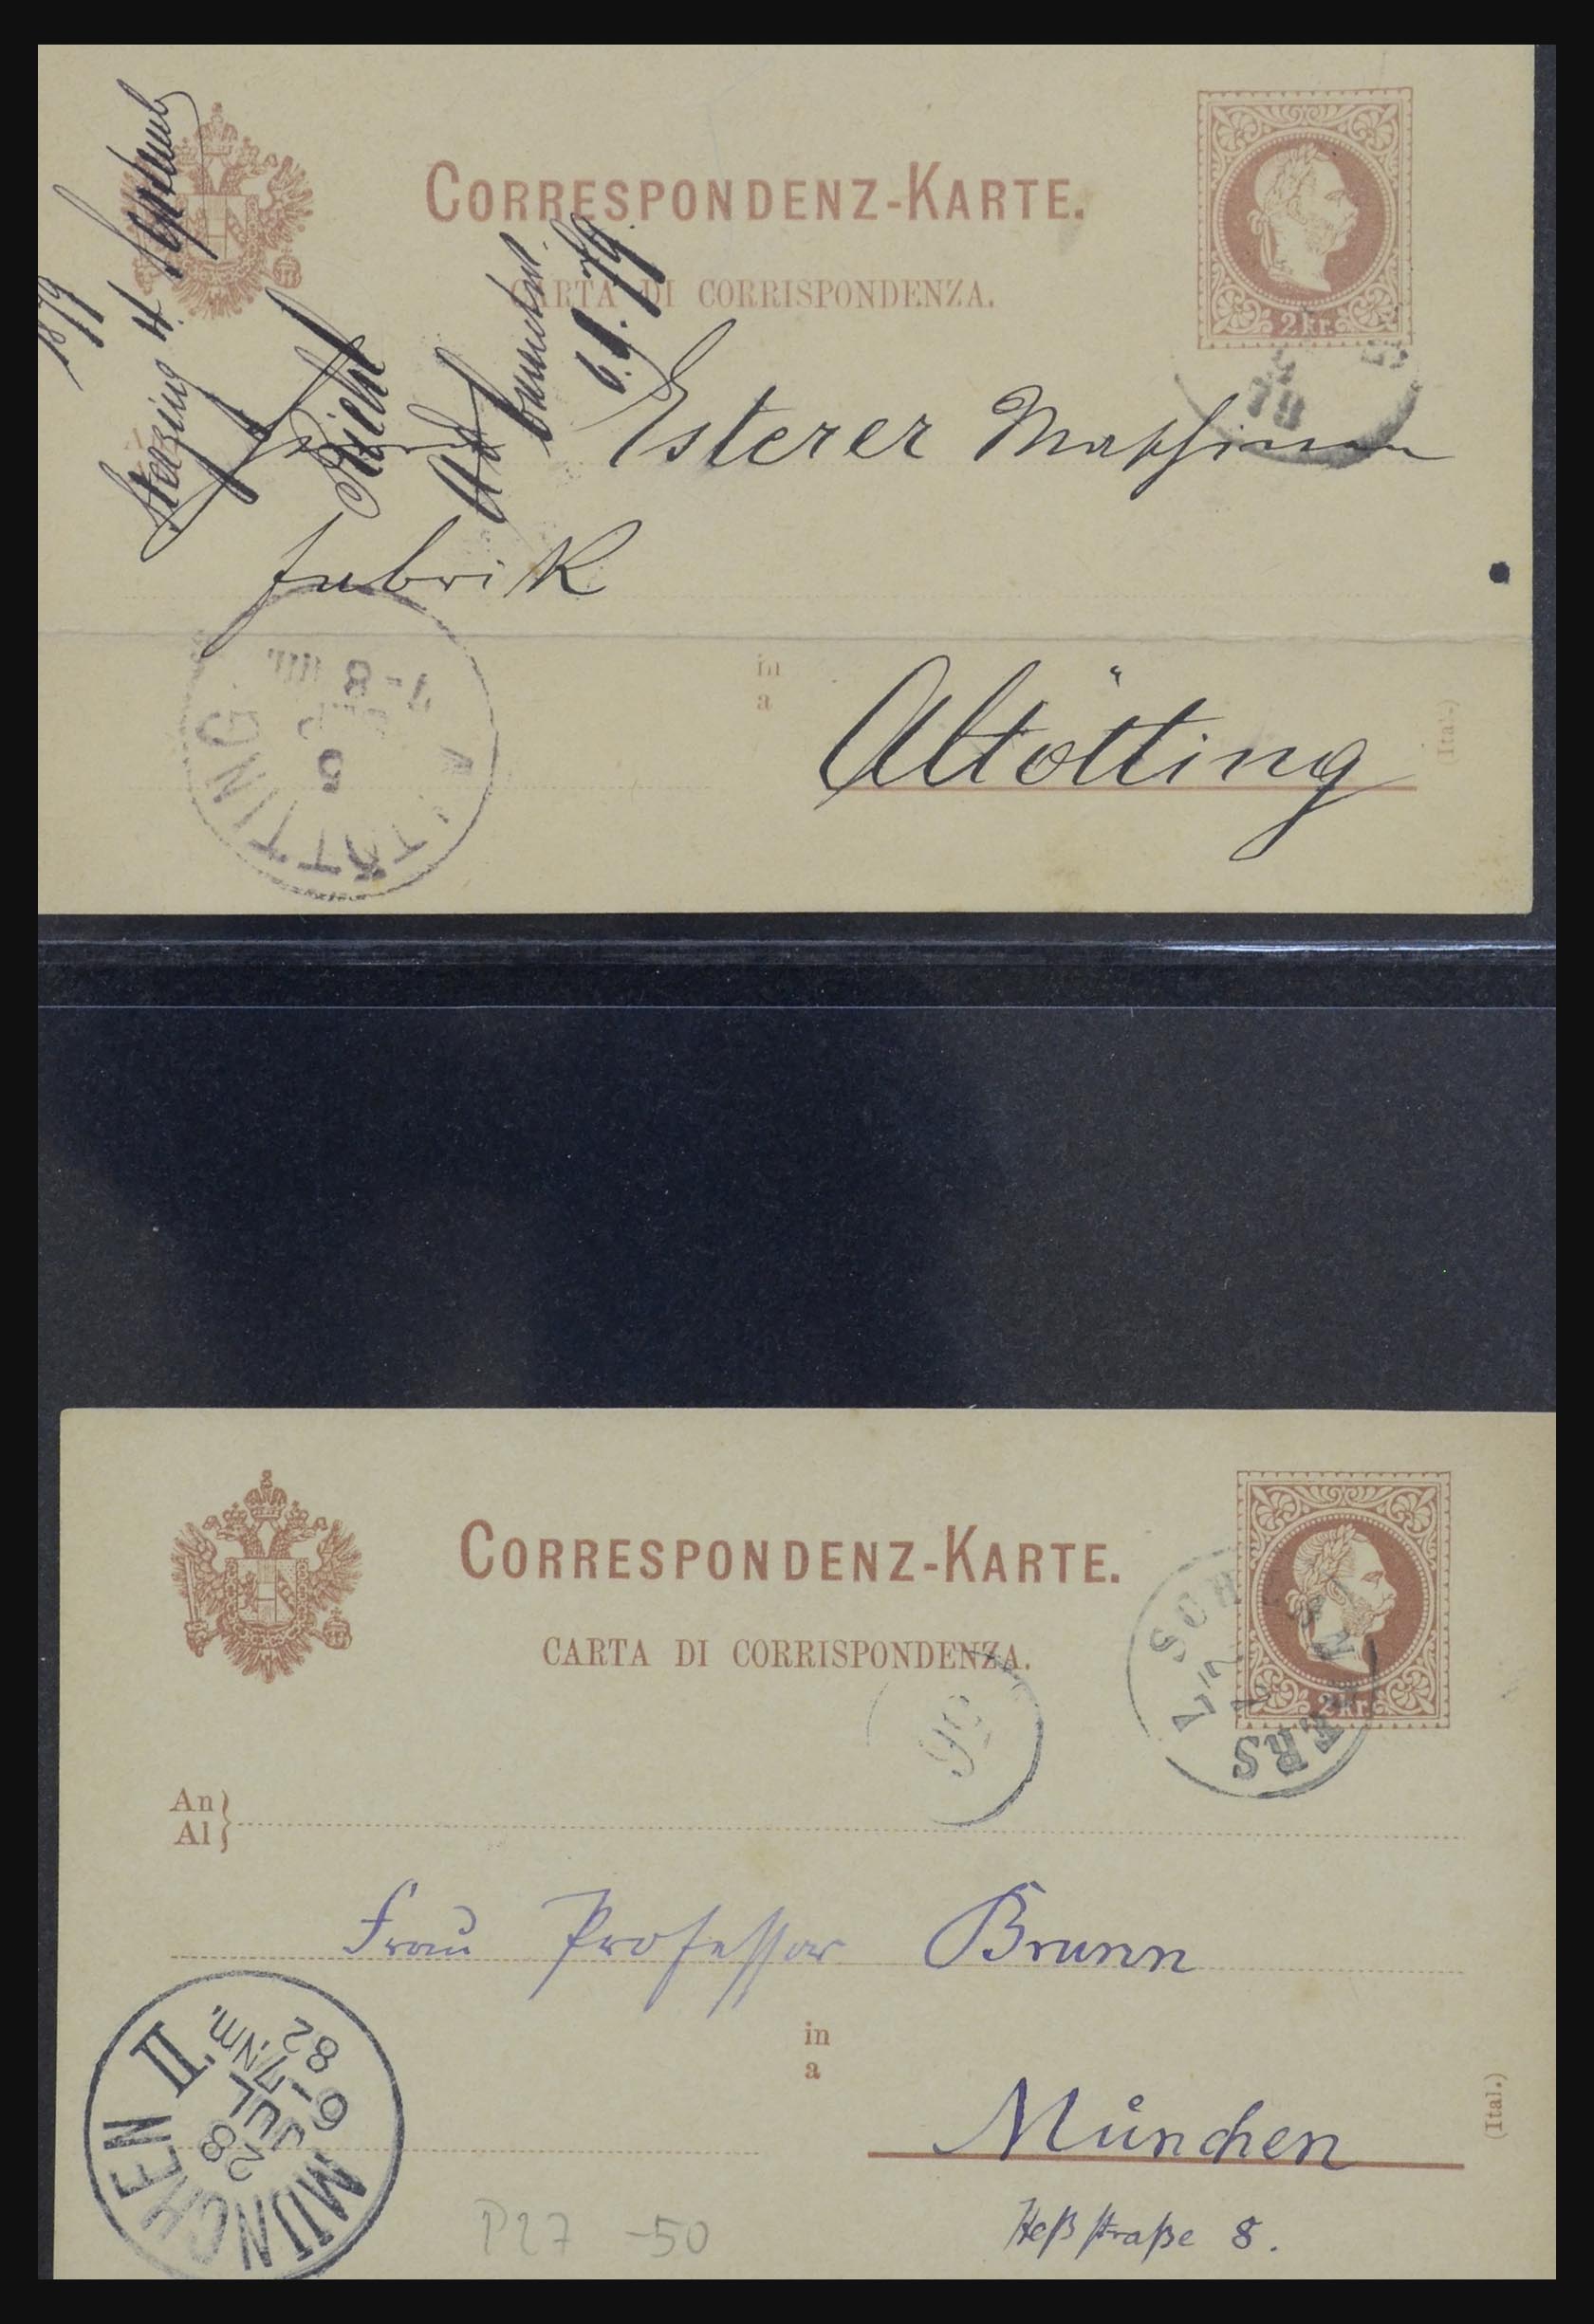 1879
Sterzing 4. Septemb
CORRESPONDENZ-KARTE.
CARTA DI CORRISPONDENZA.
2 kr.
79
6.9.79.
Esterer Maschinen
fabrik
in
a
Altötting
(Ital.)
ALTÖTTING
5
SEP
7-8
CORRESPONDENZ-KARTE.
CARTA DI CORRISPONDENZA.
2 kr.
An
Al
Frau Professor Brunn
in
a
München
(Ital.)
Heßstraße 8.
MÜNCHEN II.
28
JUL
6-7 NM.
82
P27 -50